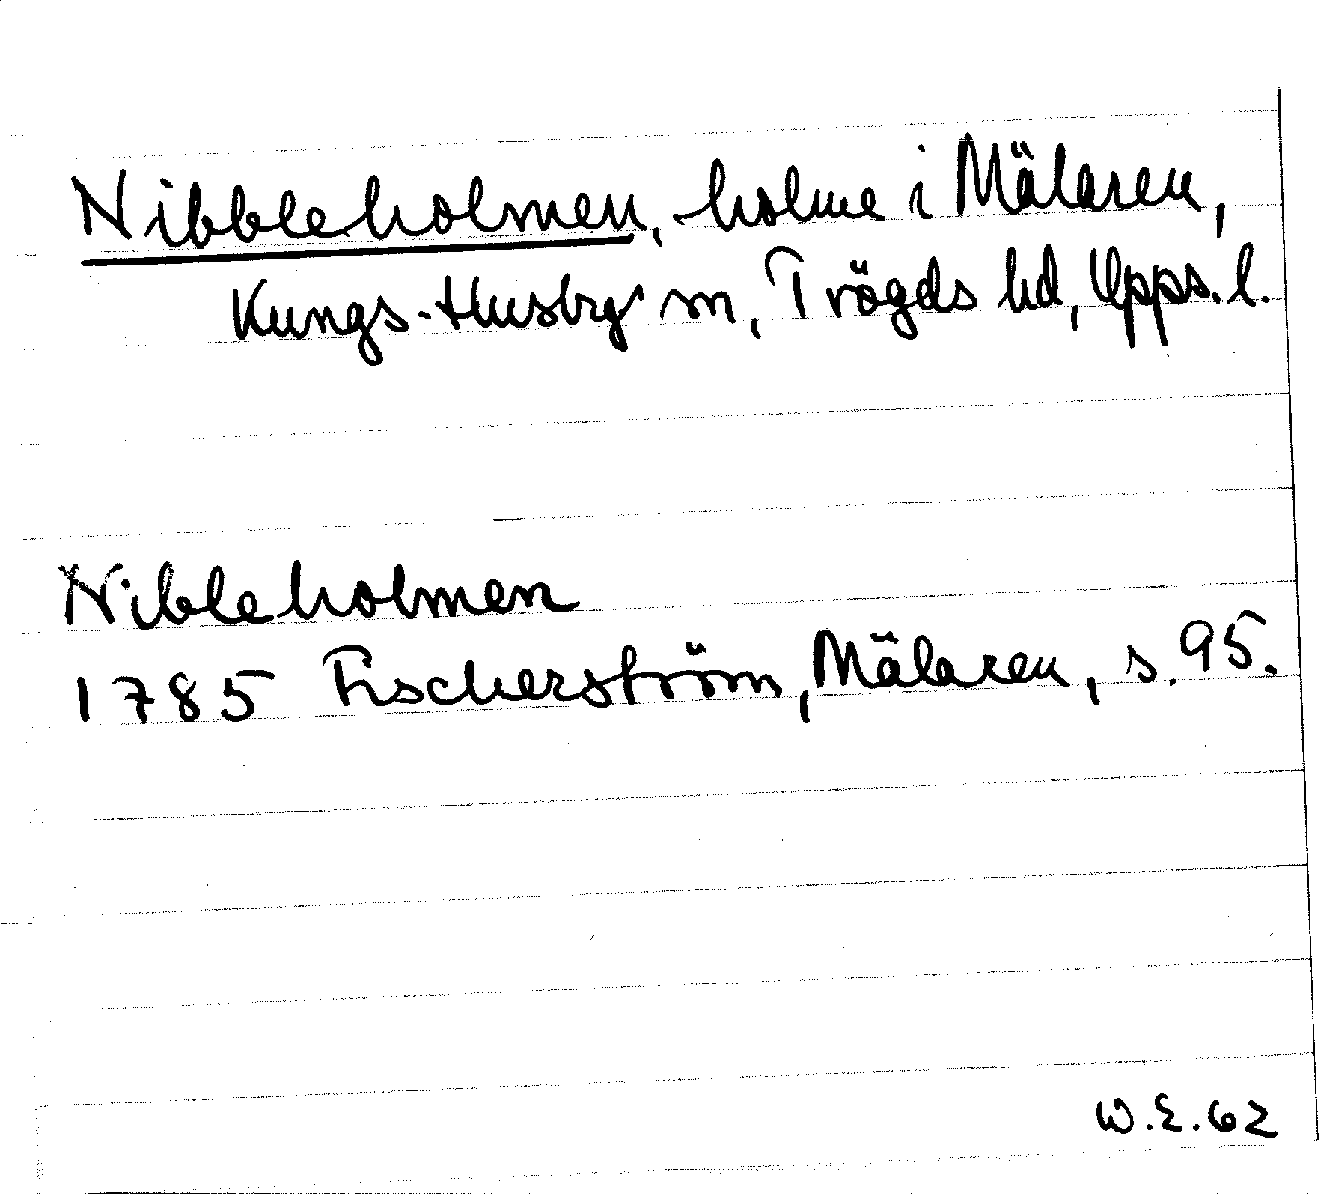 Nibbleholmen, holme i Mälaren,
Kungs-Husby sn, Trögds hd, Upps. l.
Nibleholmen
1785 Fischerström, Mälaren, s. 95.
W.E. 62